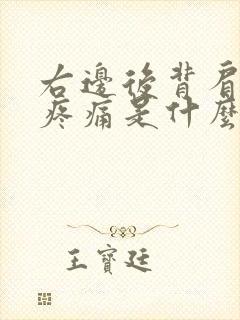 右邊後背肩
疼痛是什麼
王寶廷